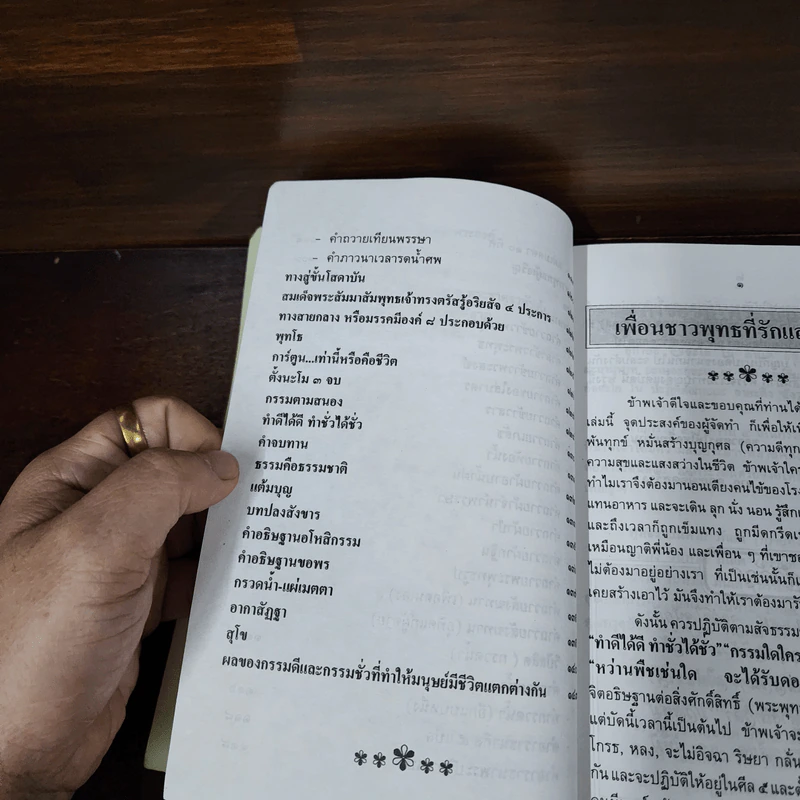 - คำถวายเทียนพรรษา
- คำภาวนาเวลารดน้ำศพ
ทางสู่ขั้นโสดาบัน
สมเด็จพระสัมมาสัมพุทธเจ้าทรงตรัสรู้อริยสัจ ๔ ประการ
ทางสายกลาง หรือมรรคมีองค์ ๘ ประกอบด้วย
พุทโธ
การ์ตูน...เท่านี้หรือคือชีวิต
ตั้งนะโม ๓ จบ
กรรมตามสนอง
ทำดีได้ดี ทำชั่วได้ชั่ว
คำจบทาน
ธรรมคือธรรมชาติ
แต้มบุญ
บทปลงสังขาร
คำอธิษฐานอโหสิกรรม
คำอธิษฐานขอพร
กรวดน้ำ-แผ่เมตตา
อากาสัฏฐา
สุโข
ผลของกรรมดีและกรรมชั่วที่ทำให้มนุษย์มีชีวิตแตกต่างกัน
๑
เพื่อนชาวพุทธที่รักแล
ข้าพเจ้าดีใจและขอบคุณที่ท่านได้
เล่มนี้ จุดประสงค์ของผู้จัดทำ ก็เพื่อให้เพื่
พ้นทุกข์ หมั่นสร้างบุญกุศล (ความดีทุก
ความสุขและแสงสว่างในชีวิต ข้าพเจ้าใคร่
ทำไมเราจึงต้องมานอนเตียงคนไข้ของโรง
แทนอาหาร และจะเดิน ลุก นั่ง นอน รู้สึก
และถึงเวลาก็ถูกเข็มแทง ถูกมีดกรีด
เหมือนญาติพี่น้อง และเพื่อน ๆ ที่เขา
ไม่ต้องมาอยู่อย่างเรา ที่เป็นเช่นนั้นก็
เคยสร้างเอาไว้ มันจึงทำให้เราต้องมารั
ดังนั้น ควรปฏิบัติตามสัจธรรม
"ทำดีได้ดี ทำชั่วได้ชั่ว" "กรรมใดใคร
"หว่านพืชเช่นใด จะได้รับดอ
จิตอธิษฐานต่อสิ่งศักดิ์สิทธิ์ (พระพุท
แต่บัดนี้เวลานี้เป็นต้นไป ข้าพเจ้าจะ
โกรธ, หลง, จะไม่อิจฉา ริษยา กลั่น
กัน และจะปฏิบัติให้อยู่ในศีล ๕ และ